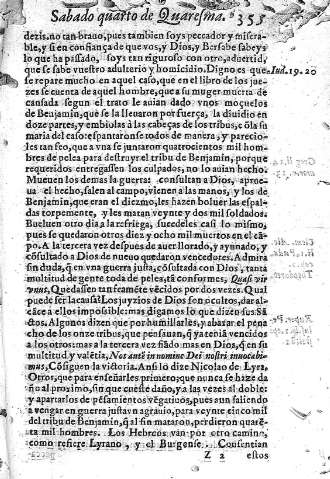 Sabado quarto de Quaresma. 355
dezis, no tan brauo, pues tambien soys pecador y misera-
ble, y si en confiança de que vos, y Dios, y Bersabe sabeys
lo que ha passado, soys tan riguroso con otro, aduertid,
que se sabe vuestro adulterio y homicidio. Digno es que
se repare mucho en aquel caso, que en el libro de los jue-
zes se cuenta de aquel hombre, que a su muger muerta de
cansada segun el trato le auian dado vnos moçuelos
de Benjamin, que se la lleuaron por fuerça, la diuidio en
doze partes, y embiolas à las cabeças de los tribus, cõ la su
maria del caso: espantaronse todos de manera, y parecio-
les tan feo, que a vna se juntaron quatrocientos mil hom-
bres de pelea para destruyr el tribu de Benjamin, porque
requeridos entregassen los culpados, no lo auian hecho.
Mueuen los demas la guerra consultan a Dios, aprue-
ua el hecho, salen al campo, vienen a las manos, y los de
Benjamin, que eran el diezmo, les hazen boluer las espal-
das torpemente, y les matan veynte y dos mil soldados.
Bueluen otro dia a la refriega, sucedeles casi lo mismo,
pues se quedaron otros diez y ocho mil muertos en el cã-
po. A la tercera vez despues de auer llorado, y ayunado, y
cõsultado a Dios de nueuo quedaron vencedores. Admira
sin duda, q̃ en vna guerra justa, cõsultada con Dios, tanta
multitud de gente toda de pelea, tã conformes, Quasi vir
vnus, Quedassen tan feamẽte vẽcidos por dos vezes. Qual
puede ser la causa? Los juyzios de Dios son ocultos, dar al-
cãce a ellos impossible: mas digamos lo que dizen sus Sã-
ctos. Algunos dizen que por humillarles, y abaxar el pẽsa-
cho de los onze tribus, que pensauan, q̃ ya tenià vencidos
a los otros: mas a la tercera vez fiãdo mas en Dios, q̃ en su
multitud y valẽtia, Nos autẽ in nomine Dei nostri inuocabi-
mus, Cõsiguen la victoria. Ansi lo dize Nicolao de Lyra.
Otros, que para enseñarles primero, que nunca se haze da
ño al proximo, sin que cueste daño, y a las vezes al doble;
y apartarlos de pẽsamientos vẽgatiuos, pues aun saliendo
a vengar en guerra justa vn agrauio, para veynte cinco mil
del tribu de Benjamin, q̃ al fin mataron, perdieron quarẽ-
ta mil hombres. Los Hebreos van por otro camino,
como refiere Lyrano, y el Burgense. Consentian
Z 2 estos
Iud. 19. 20